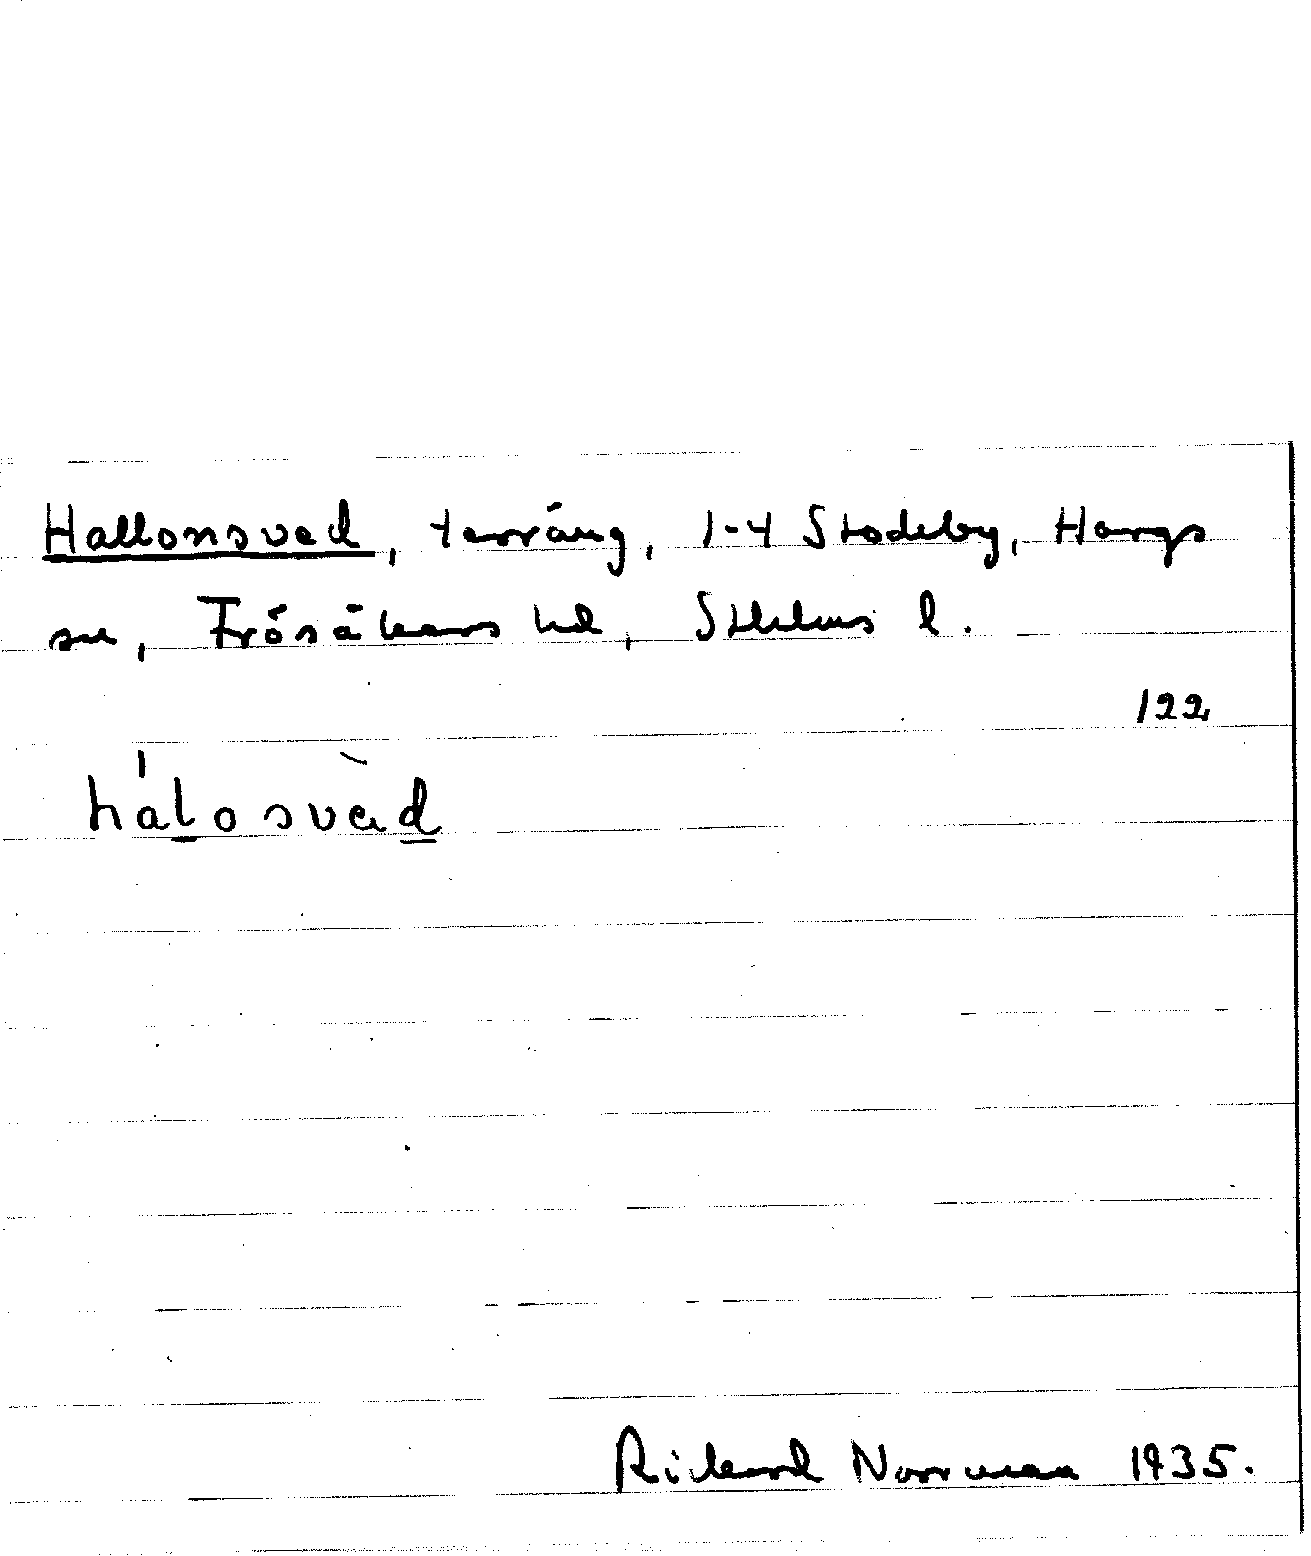 Hallonsved, terräng, 1-4 Stodeby, Hargs
sn, Frösåkers hd, Sthlms l.
122
hálosvèd
Rickard Norrman 1935.